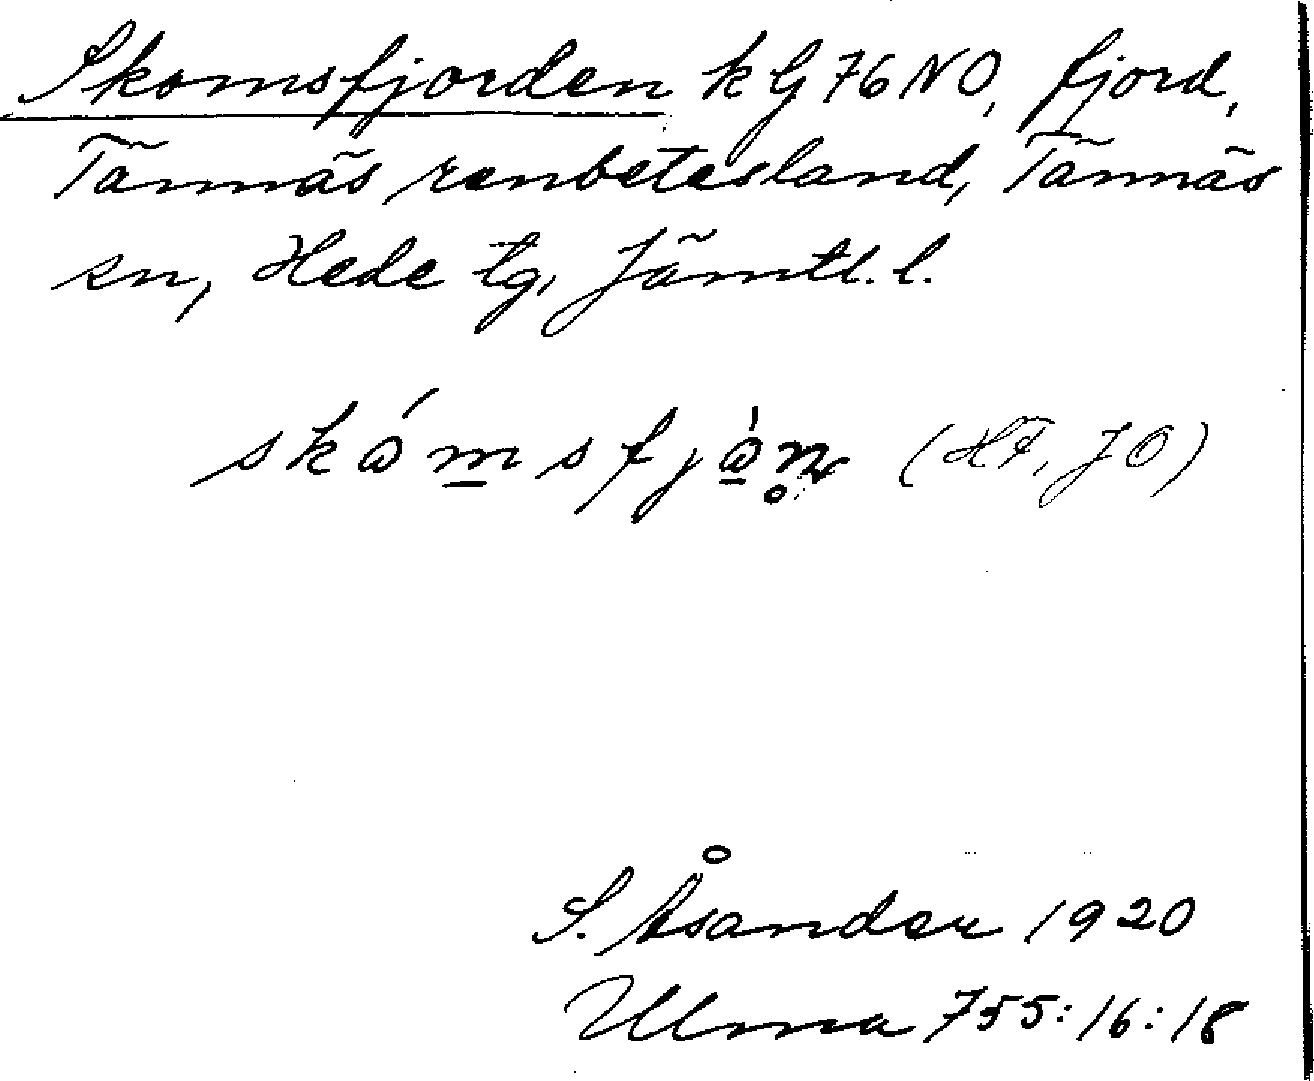 Skomsfjorden kG 76 NO, fjord,
Tännäs renbetesland, Tännäs
sn, Hede tg, Jämtl. l.
(HF, JO)
S. Åsander 1920
Ulma 755:16:18